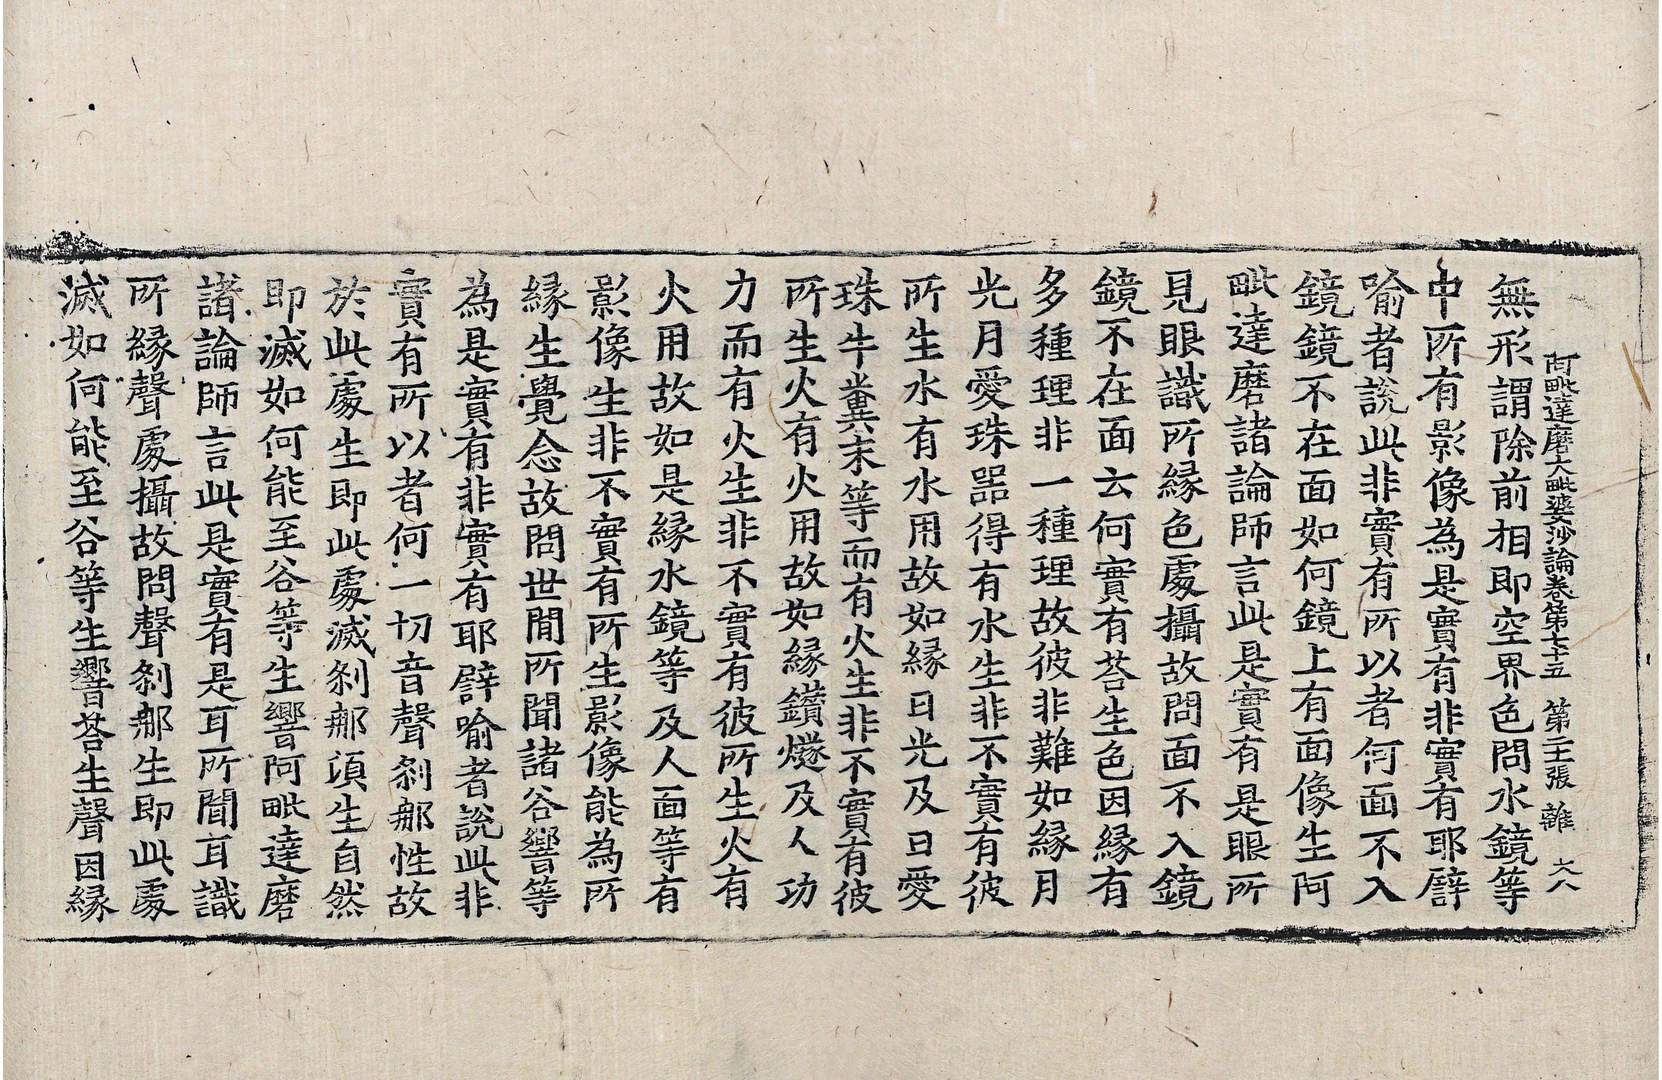 阿毗達磨大毗婆沙論卷第七十五　第二十張　雜
無形謂除前相即空界色問水鏡等
中所有影像為是實有非實有耶譬
喻者說此非實有所以者何面不入
鏡鏡不在面如何鏡上有面像生阿
毗達磨諸論師言此是實有是眼所
見眼識所緣色處攝故問面不入鏡
鏡不在面云何實有荅生色因緣有
多種理非一種理故彼非難如緣月
光月愛珠器得有水生非不實有彼
所生水有水用故如緣日光及日愛
珠牛糞末等而有火生非不實有彼
所生火有火用故如緣鑽燧及人功
力而有火生非不實有彼所生火有
火用故如是緣水鏡等及人面等有
影像生非不實有所生影像能為所
緣生覺念故問世間所聞諸谷響等
為是實有非實有耶譬喻者說此非
實有所以者何一切音聲剎那性故
於此處生即此處滅剎那頃生自然
即滅如何能至谷等生響阿毗達磨
諸論師言此是實有是耳所聞耳識
所緣聲處攝故問聲剎那生即此處
滅如何能至谷等生響荅生聲因緣